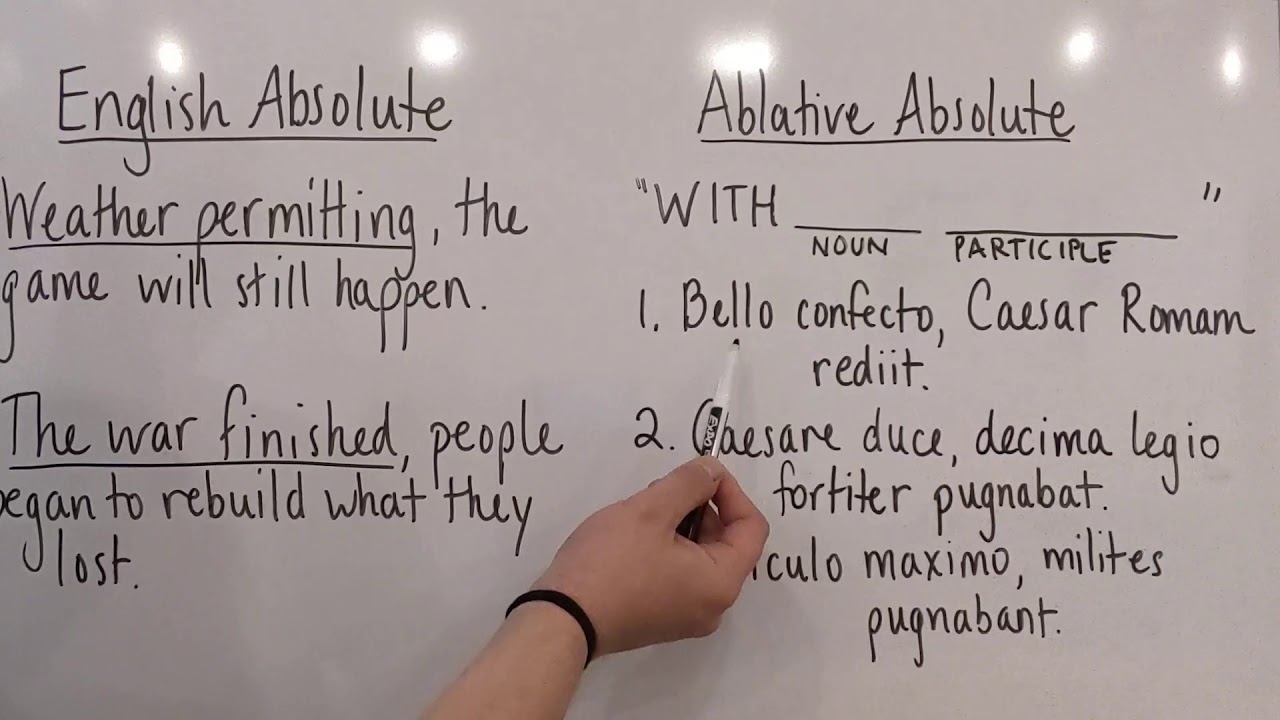 English Absolute
Weather permitting, the
game will still happen.
The war finished, people
began to rebuild what they
lost.
Ablative Absolute
"WITH ____ ____"
NOUN PARTICIPLE
1. Bello confecto, Caesar Romam
rediit.
2. Caesare duce, decima legio
fortiter pugnabat.
maximo, milites
pugnabant.